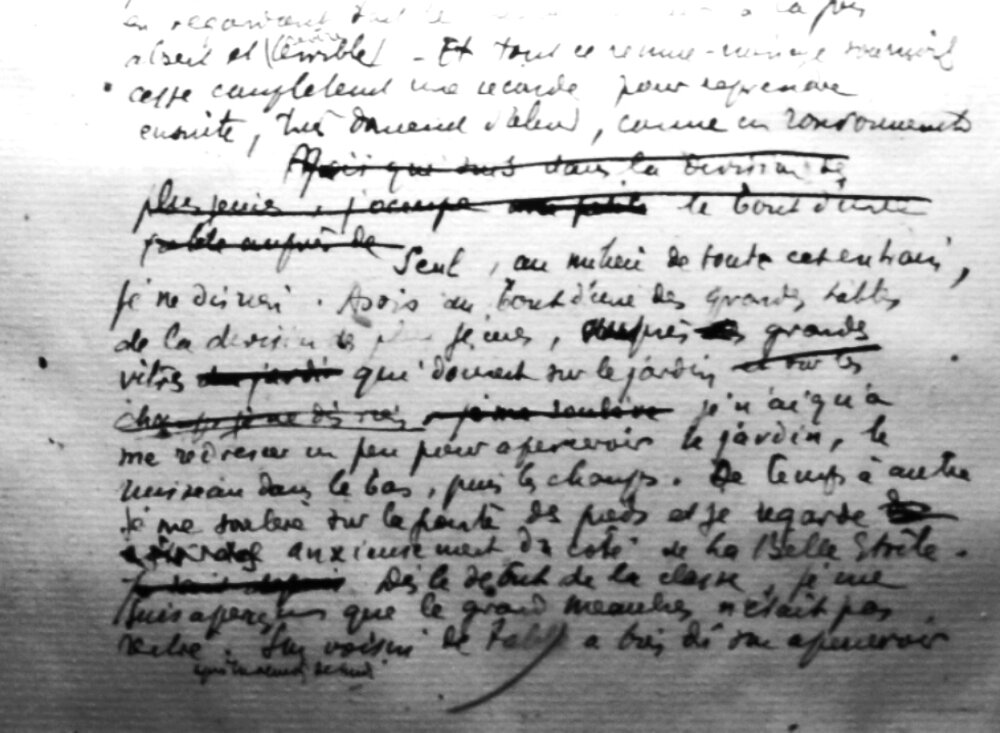 en regardant
et (terrible) - Et tout ce remue-ménage
cesse complètement une seconde pour reprendre
ensuite, très doucement d'abord, comme un ronronnement
Mais qui suis dans la division des
plus jeunes, j'occupe une petite le bout d'une
table auprès de
Seul, au milieu de toute cet entrain,
je ne dis rien. Assis au bout d'une des grandes tables
de la division des plus jeunes, auprès des grandes
vitres du jardin qui donnent sur le jardin et sur les
champs je ne dis rien je me soulève je n'ai qu'à
me redresser un peu pour apercevoir le jardin, le
ruisseau dans le bas, puis les champs. De temps à autre
je me soulève sur la pointe des pieds et je regarde
anxieusement du côté de La Belle Etoile.
Dès le début de la classe, je me
suis aperçu que le grand meaulnes n'était pas
rentré. Son voisin de table a bien dû s'en apercevoir